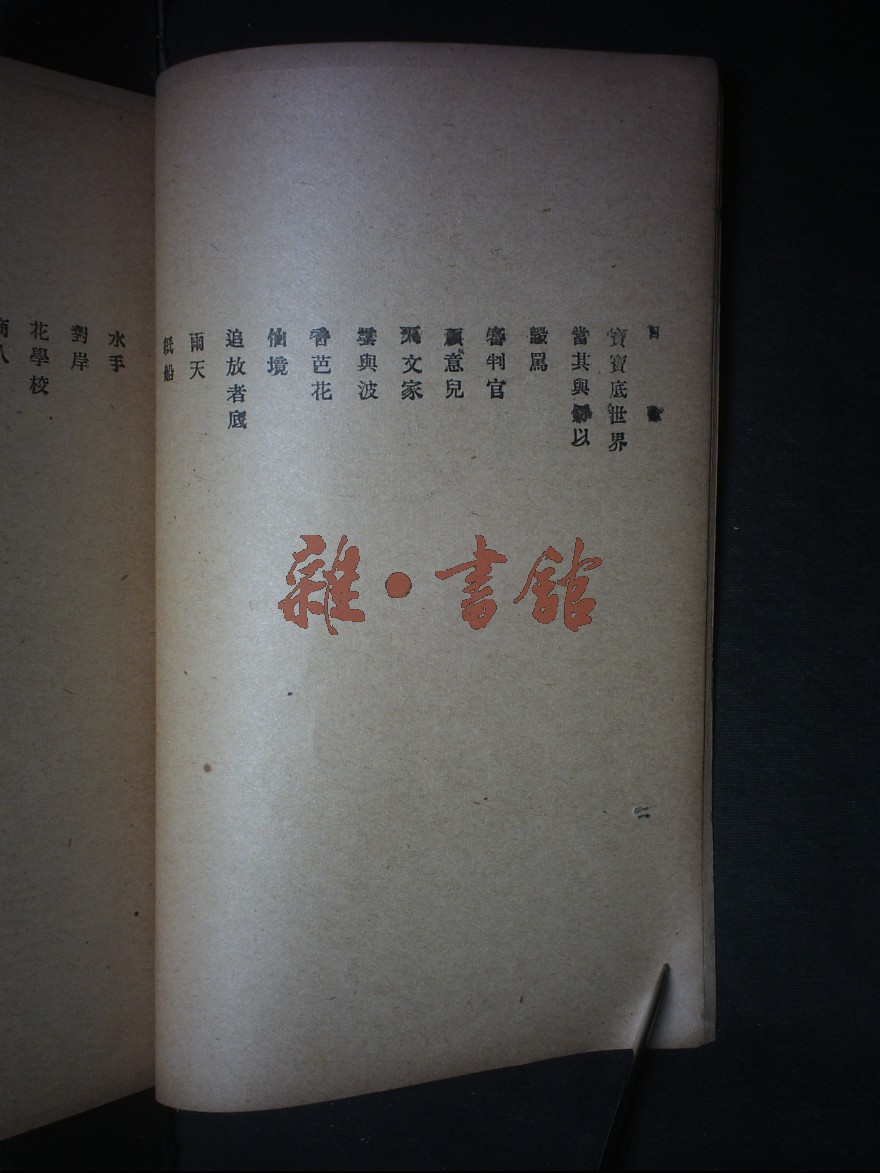 目
二
寶寶底世界
當其與所以
毀罵
審判官
頑意兒
天文家
雲與波
香芭花
仙境
追放者底
雨天
紙船
水手
對岸
花學校
商人
雜·書館